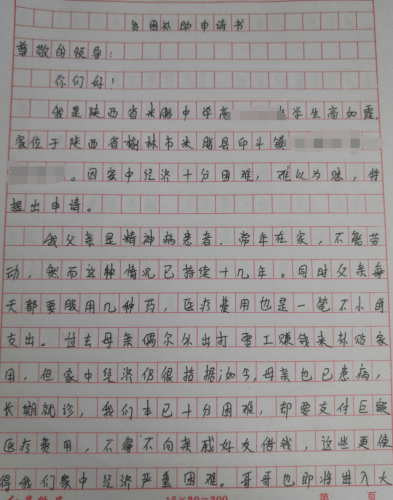 贫困补助申请书
尊敬的领导：
你们好！
我是陕西省米脂中学高 学生高如霞，
家位于陕西省榆林市米脂县印斗镇
。因家中经济十分困难，难以为继，特
提出申请。
我父亲是精神病患者，常年在家，不能劳
动，然而这种情况已持续十几年。同时父亲每
天都要服用几种药，医疗费用也是一笔不小的
支出。过去母亲偶尔外出打零工赚钱来补贴家
用，但家中经济仍很拮据；如今，母亲也已患病，
长期就诊，我们本已十分困难，却要支付巨额
医疗费用，不得不向亲戚好友借钱，这些更使
得我们家中经济严重困难。哥哥也即将进入大
15×20=300 第 页